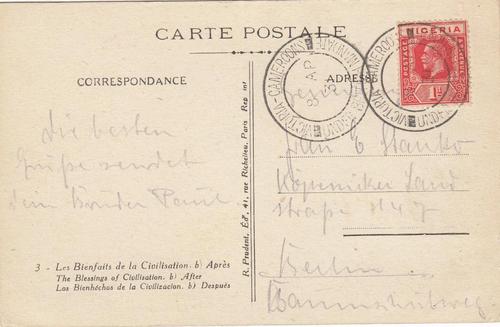 CARTE POSTALE
NIGERIA
POSTAGE
1d
VICTORIA-CAMEROONS
UNDER BRITISH MANDATE
AP
CORRESPONDANCE
ADRESSE
Die besten
Grüße sendet
dein Bruder Paul
Stanko
Köpenicker Land
straße 147
Berlin
Baumschulweg
R. Prudent, Édr, 41, rue Richelieu, Paris Rep int
3 - Les Bienfaits de la Civilisation. b) Après
The Blessings of Civilisation. b) After
Los Bienhéchos de la Civilizacion. b) Después